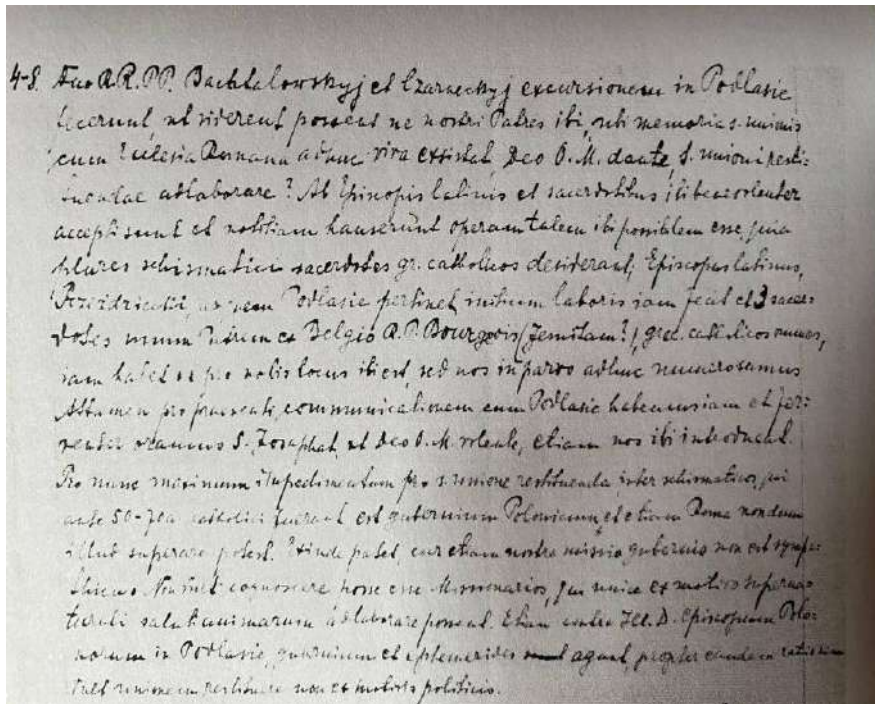 4-8. Duo R.R. PP. Bachtalowskyj et Czarneckyj excursionem in Podlasie
fecerunt, ut viderent possent ne nostri Patres ibi, ubi memoria s. unionis
cum Ecclesia Romana adhuc viva existat, Deo O. M. dante, S. unioni resti-
tuendae adlaborare? Ab Episcopis latinis et sacerdotibus ibi benevolenter
accepti sunt et notitiam hauserunt operam talem ibi possibilem esse, quia
plures schismatici sacerdotes gr. catholicos desiderant; Episcopus latinus,
Przezdziecki, ad quem Podlasie pertinet, initium laboris iam fecit et 3 sacer-
dotes unum Patrem ex Belgio R. P. Bourgeois (Jesuitam?), grec. catholicos omnes,
iam habet et pro nobis locus ibi est, sed nos in parvo adhuc numero sumus
Attamen pro praesenti, communicationem cum Podlasie habemus iam et fer-
venter oramus S. Josaphat, ut Deo O. M. volente, etiam nos ibi introducat.
Pro nunc maximum impedimentum pro s. unione restituenda inter schismaticos, qui
ante 50-70 a. catholici fuerant est gubernium Polonicum, et etiam Roma nondum
illud superare potest. Et inde patet, cur etiam nostra missio gubernio non est sympa-
thica. Non vult cognoscere nosse esse Missionarios, qui unice ex motivo superna-
turali saluti animarum adlaborare possent. Etiam contra Ill. D. Episcopum Polo-
norum in Podlasie, gubernium et ephemerides agunt, propter eandem rationem
vult unionem restituere non ex motivis politicis.